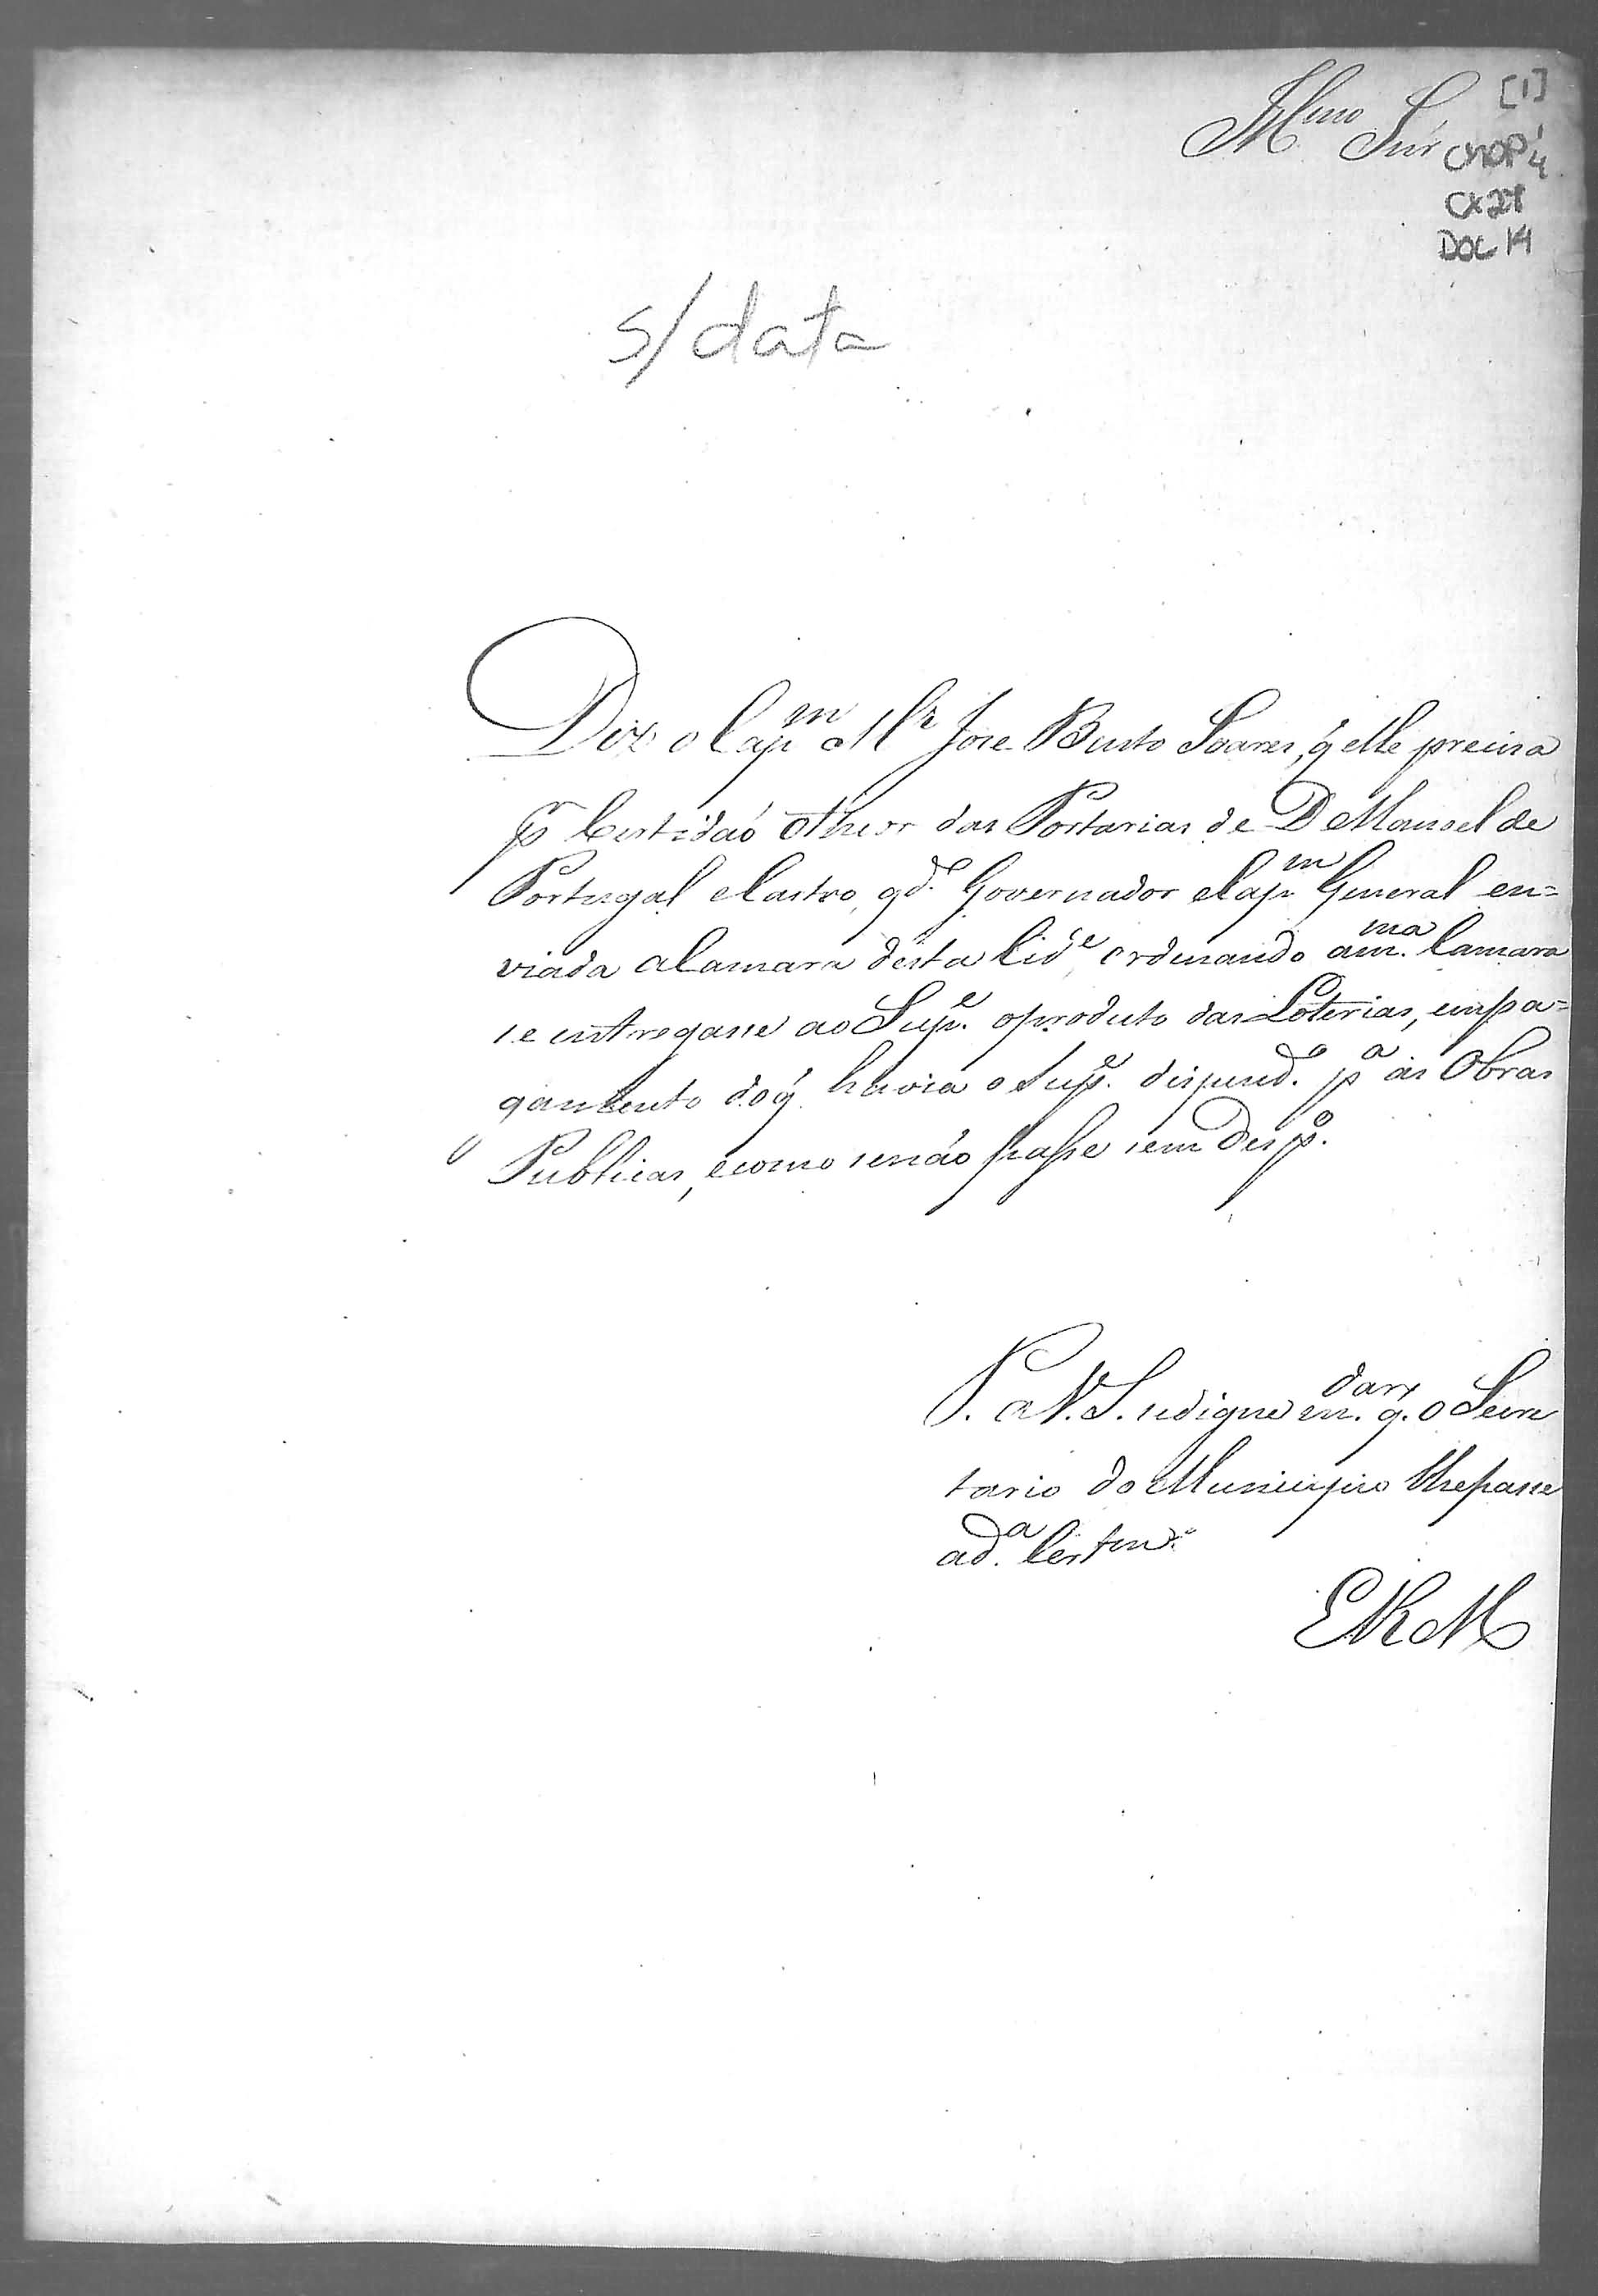 Illmo Snr
[1]
CMOP 1/4
CX 21
DOC 14
s/data
Diz o Capm Ml Jose Bento Soares, q̃ elle precisa
pr Certidaó o theor das Portarias de D Manoel de
Portugal e Castro, qdo Governador e Capm General en=
viada a Camara désta Cide ordenando a m.ma Camara
se entregasse ao Supe. o produto das Loterias, em pa=
gamento do q̃ havia o Supe. dispend.o pa as Obras
Publicas, e como se não passe sem Despo.
P. a V. S. se digne m.dar q. o Secre
tario do Municipio lhe passe
a d.a Certam.
E R M